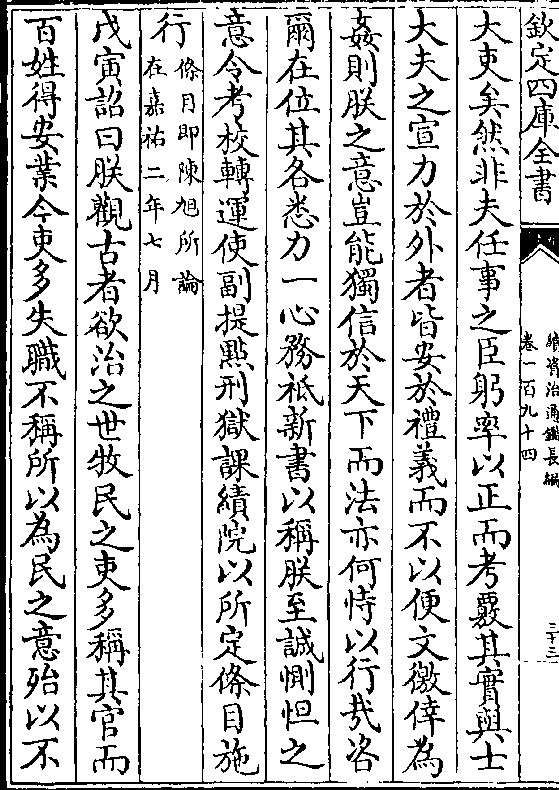 欽定四庫全書
續資治通鑑長編
卷一百九十四
三十三
大吏矣然非夫任事之臣躬率以正而考覈其實與士
大夫之宣力於外者皆安於禮義而不以便文徼倖為
姦則朕之意豈能獨信於天下而法亦何恃以行哉咨
爾在位其各悉力一心務祗新書以稱朕至誠惻怛之
意令考校轉運使副提㸃刑獄課績院以所定條目施
行條目即陳旭所論
在嘉祐二年七月
戊寅詔曰朕觀古者欲治之世牧民之吏多稱其官而
百姓得安業今吏多失職不稱所以為民之意殆以不